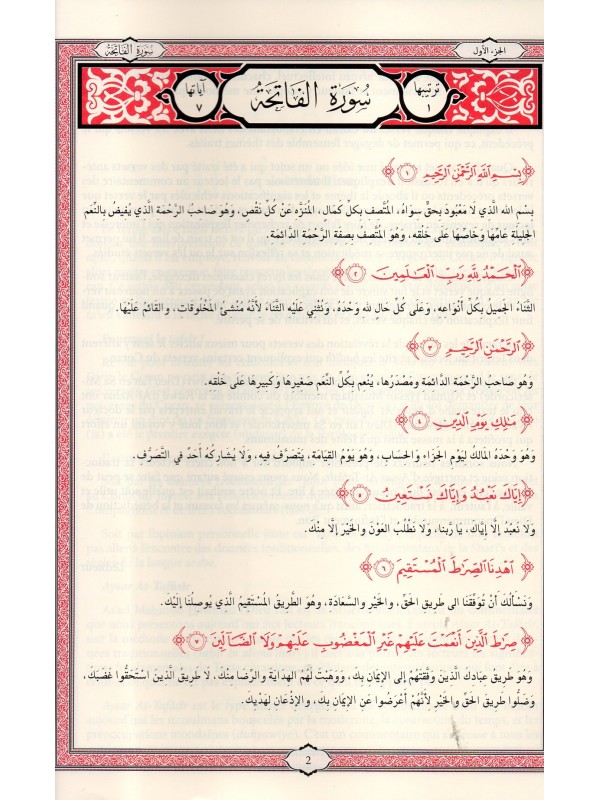 الجزء الأول
سورة الفاتحة
ترتيبها
١
سُورَةُ الفَاتِحَةُ
آياتها
٧
﴿بِسْمِ اللَّهِ الرَّحْمَٰنِ الرَّحِيمِ ١﴾
بِسْمِ الله الَّذي لا مَعْبُودَ بِحقٍّ سِوَاهُ، المُتَّصِفِ بِكلِّ كَمَالٍ، المُنَزَّهِ عَنْ كُلِّ نَقْصٍ، وَهُوَ صَاحبُ الرَّحْمَة الَّذي يُفيضُ بالنِّعَم
الجَليلَة عَامِّهَا وَخَاصِّهَا عَلَى خَلْقه، وَهُوَ المُتَّصفُ بصفَة الرَّحْمَة الدَّائمَة.
﴿الْحَمْدُ لِلَّهِ رَبِّ الْعَالَمِينَ ٢﴾
الثَّنَاءُ الجَميلُ بكُلِّ أَنْوَاعه، وَعَلَى كُلِّ حَالٍ لله وَحْدَهُ، وَنُثْني عَلَيْه الثَّنَاءَ لأَنَّهُ مُنْشئُ المَخْلُوقات، والقَائمُ عَلَيْهَا.
﴿الرَّحْمَٰنِ الرَّحِيمِ ٣﴾
وَهُو صَاحبُ الرَّحْمَة الدَّائمَة ومَصْدَرُها، يُنْعم بكُلِّ النِّعَم صَغيرهَا وَكَبيرهَا عَلَى خَلْقه.
﴿مَٰلِكِ يَوْمِ الدِّينِ ٤﴾
وَهُوَ وَحْدَهُ المَالكُ ليَوْم الجَزَاء وَالحسَاب، وَهُوَ يَوْمُ القيَامَة، يَتَصَرَّفُ فيه، وَلَا يُشَاركُهُ أَحَدٌ في التَّصَرُّف.
﴿إِيَّاكَ نَعْبُدُ وَإِيَّاكَ نَسْتَعِينُ ٥﴾
وَلَا نَعْبُدُ إلَّا إيَّاكَ، يَا رَبَّنا، وَلَا نَطْلُبُ العَوْنَ وَالخَيْرَ إلَّا منْكَ.
﴿اهْدِنَا الصِّرَٰطَ الْمُسْتَقِيمَ ٦﴾
وَنَسْأَلُكَ أَنْ تُوَفِّقَنَا الى طَريق الحَقِّ، والخَيْر وَالسَّعَادَة، وَهُوَ الطَّريق المُسْتَقيمُ الَّذي يُوصلُنَا إلَيْكَ.
﴿صِرَٰطَ الَّذِينَ أَنْعَمْتَ عَلَيْهِمْ غَيْرِ الْمَغْضُوبِ عَلَيْهِمْ وَلَا الضَّآلِّينَ ٧﴾
وَهُوَ طَريقُ عبَادكَ الَّذينَ وَفَّقْتَهُمْ إلى الإيمَان بكَ، وَوَهَبْتَ لَهُمُ الهدَايَةَ والرِّضَا منْكَ، لا طَريقَ الَّذينَ اسْتَحَقُّوا غَضَبَكَ،
وَضَلُّوا طَريقَ الحَقِّ والخَيْر لأَنَّهُمْ أَعْرَضُوا عَن الإيمَان بكَ، وَالإذْعَان لهَدْيكَ.
2